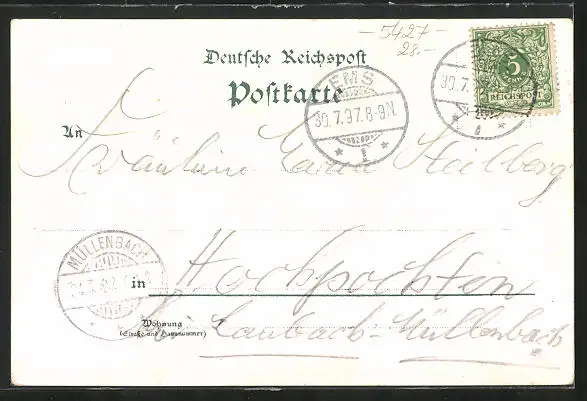 – 5427 –
28.–
Deutsche Reichspost
Postkarte
EMS
30.7.97.8-9N.
1
5
REICHSPOST
An
Fräulein Maria Stollberg
MÜLLENBACH
in Hochpochten
Wohnung
(Straße und Hausnummer)
bei Laubach-Müllenbach